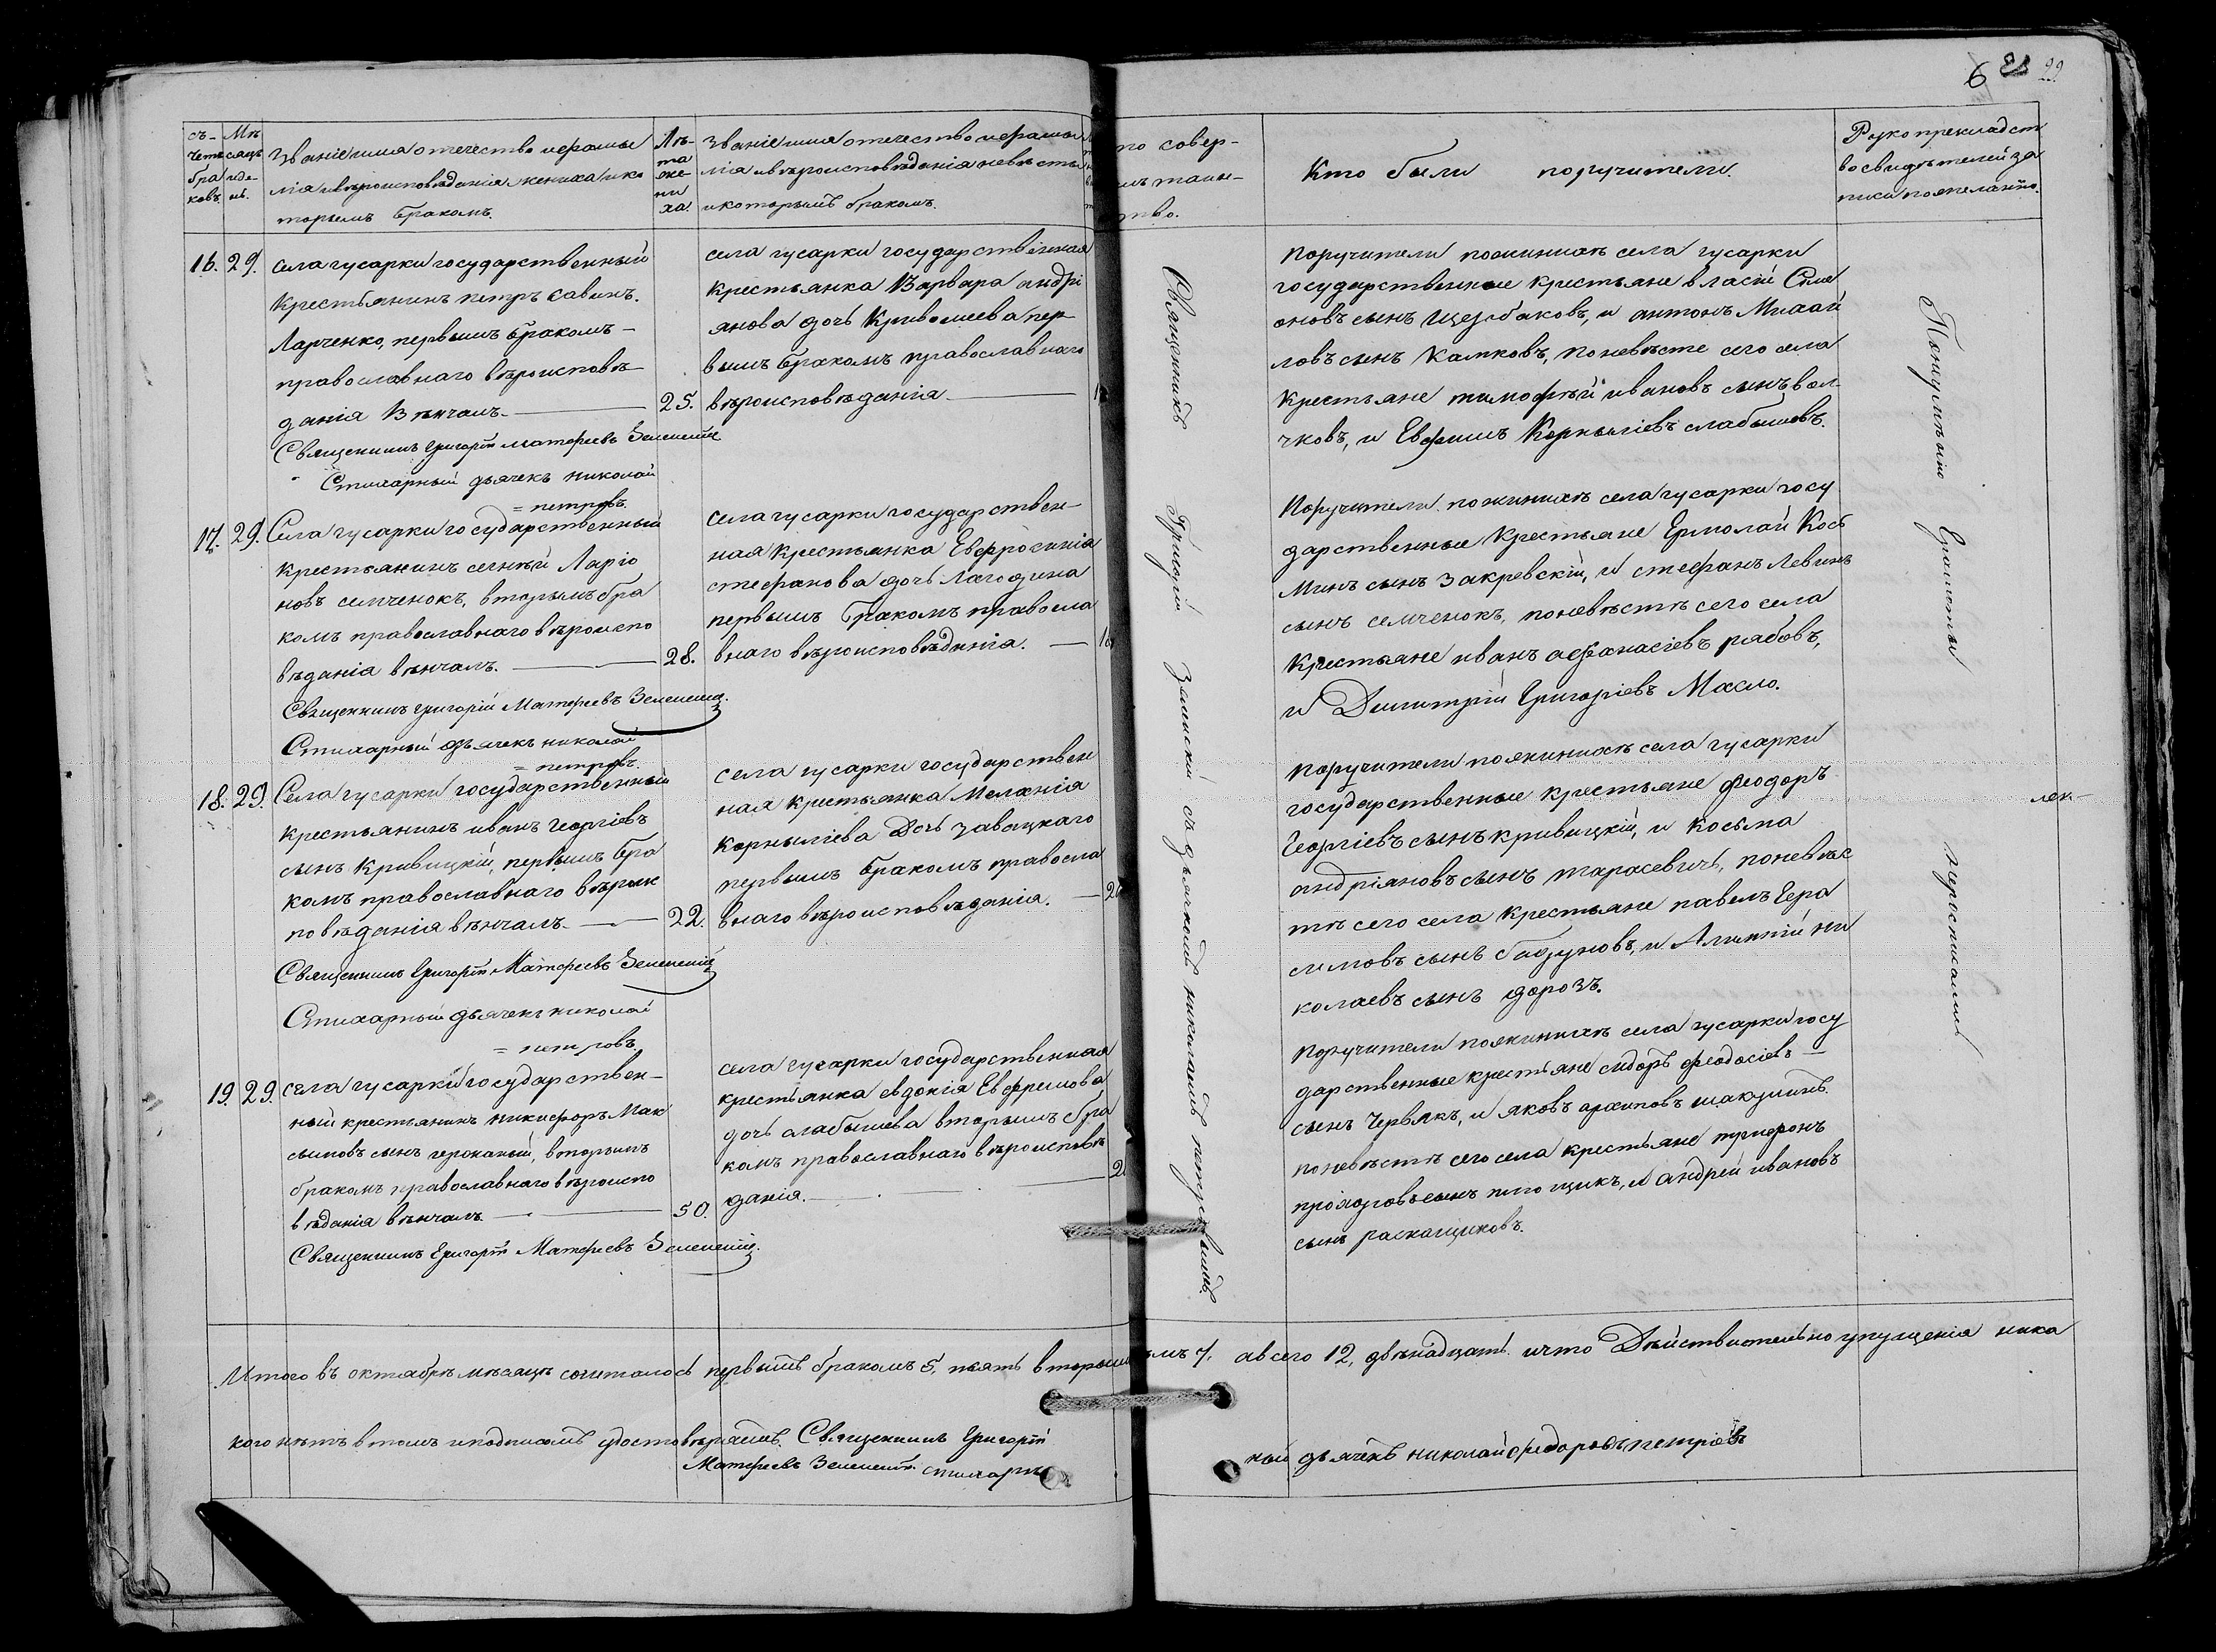 6 28 22
съ-
четъ
бра
ковъ.
Мѣ
сяцъ
иде-
нь.
Званіе имя отечество ифами
лія ивѣроисповѣданія жениха ико
торымъ бракомъ.
Лѣ-
та
же
ни
ха.
Званіе имя отечество ифами
лія ивѣроисповѣданія невѣсты
икоторымъ бракомъ.
то совер-
илъ таин-
ство.
Кто были поручители.
Рукоприкладст
во свидѣтелей за
писи по желанію.
16. 29. села гусарки государственный
Крестьянинъ петръ савинъ.
Ларченко, первымъ бракомъ-
православнаго вѣроисповѣ-
данія Вѣнчалъ. 25.
Священникъ Григорій матфеевъ
Стихарный дьячекъ николай
= петровъ.
села гусарки государственная
крестьянка Варвара андрі
янова дочь Кривошеева пер-
вымъ бракомъ православнаго
вѣроисповѣданія
поручители поженихѣ села гусарки
государственные крестьяне власій Симе
оновъ сынъ щербаковъ, и антонъ Михай
ловъ сынъ Камковъ, поневѣсте сего села
крестьяне тимофѣй ивановъ сынъ вол-
чковъ, и Евфимъ Корныліевъ слабышовъ.
17. 29. Села гусарки государственный
крестьянинъ Ларіо
новъ семченокъ, вторымъ бра
комъ православнаго вѣроиспо
вѣданія вѣнчалъ. 28.
Священникъ григорій Матфеевъ
Стихарный дьячекъ николай
= петровъ.
села гусарки государствен-
ная крестьянка Евфросинія
стефанова дочь Лагодина
первымъ бракомъ правосла
внаго вѣроисповѣданія.
Поручители поженихѣ села гусарки госу
дарственные крестьяне Ермолай Кось
минъ сынъ закревскій, и стефанъ Левинъ
сынъ семченокъ, поневѣстѣ сего села
крестьяне иванъ афанасіевъ рябовъ,
и Димитрій Григоріевъ Масло.
18. 29. Села гусарки государственный
крестьянинъ иванъ Георгіевъ
сынъ Кривицкій, первымъ бра
комъ православнаго вѣроис
повѣданія вѣнчалъ 22.
Священникъ Григорій Матфеевъ
Стихарный дьячекъ николай
= петровъ.
села гусарки государствен
ная крестьянка Меланія
корныліева Дочь завацкаго
первымъ бракомъ правосла
внаго вѣроисповѣданія.
поручители поженихѣ села гусарки
государственные крестьяне феодоръ
Георгіевъ сынъ кривицкій, и Косьма
андріяновъ сынъ тарасевичъ, поневѣс
тѣ сего села крестьяне павелъ Гера
симовъ сынъ и Алимпій ни
колаевъ сынъ дорозъ.
19. 29. села гусарки государствен-
ный крестьянинъ никифоръ Мак
симовъ сынъ вторымъ
бракомъ православнаго вѣроиспо
вѣданія вѣнчалъ 50.
Священникъ Григорій Матфеевъ
села гусарки государственная
крестьянка евдокія Евфремова
дочь слабышева вторымъ бра
комъ православнаго вѣроисповѣ
данія.
поручители поженихѣ села гусарки госу
дарственные крестьяне сидоръ феодосіевъ
сынъ Червякъ, и яковъ архиповъ
поневѣстѣ сего села крестьяне трифонъ
прохоровъ сынъ и андрей ивановъ
сынъ
Священникъ Григорій съ дьячкомъ николаемъ петровымъ.
лек-
Итого въ октябрѣ мѣсяцѣ сочеталось первымъ бракомъ 5, пять вторымъ 7, авсего 12, двѣнадцать. ичто Дѣйствительно упущенія ника
кого нѣтъ втомъ иподписомъ удостовѣряемъ. Священникъ Григорій
Матфеевъ стихарный дьячекъ николай федоровъ петровъ